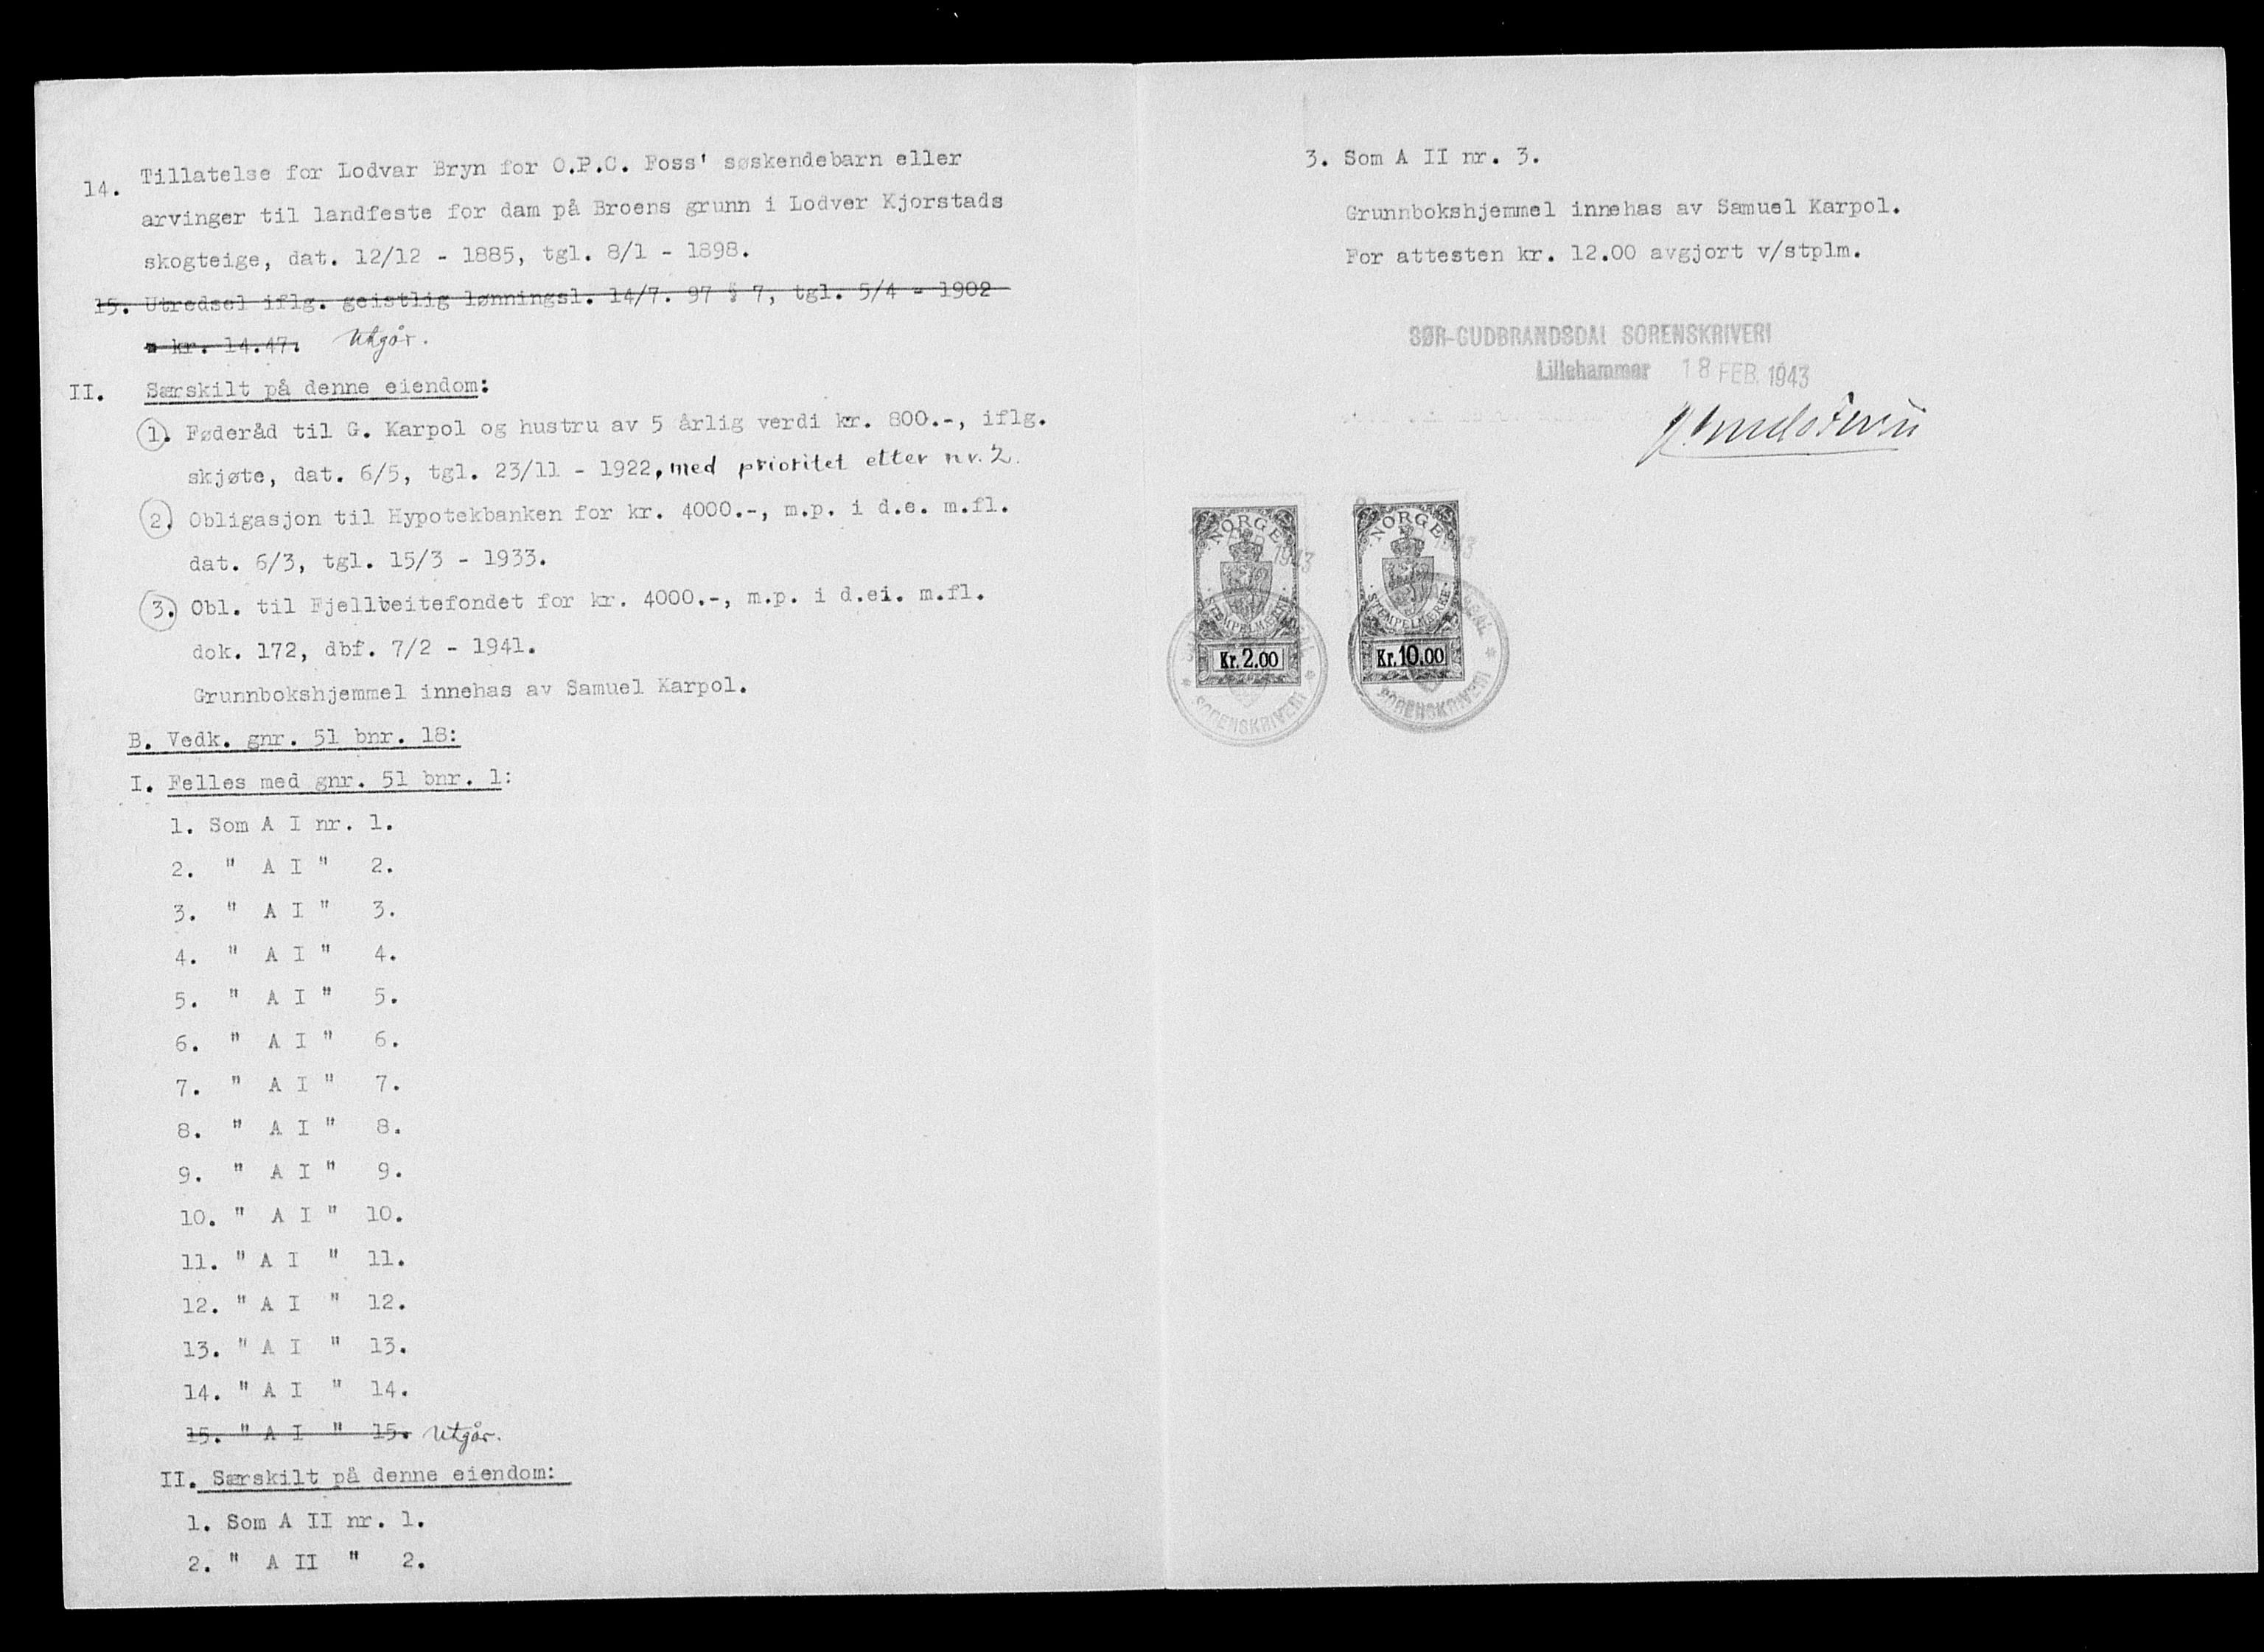 14. Tillatelse for Lodvar Bryn for O.P.C. Foss' søskendebarn eller
arvinger til landfeste for dam på Broens grunn i Lodver Kjorstads
skogteige, dat. 12/12 - 1885, tgl. 8/1 - 1898.
15. Utredsel iflg. geistlig lønningsl. 14/7. 97 § 7, tgl. 5/4 - 1902
kr. 14.47. Utgår.
II. Særskilt på denne eiendom:
1. Føderåd til G. Karpol og hustru av 5 årlig verdi kr. 800.-, iflg.
skjøte, dat. 6/5, tgl. 23/11 - 1922, med prioritet etter nr. 2.
2. Obligasjon til Hypotekbanken for kr. 4000.-, m.p. i d.e. m.fl.
dat. 6/3, tgl. 15/3 - 1933.
3. Obl. til Fjellbeitefondet for kr. 4000.-, m.p. i d.ei. m.fl.
dok. 172, dbf. 7/2 - 1941.
Grunnbokshjemmel innehas av Samuel Karpol.
B. Vedk. gnr. 51 bnr. 18:
I. Felles med gnr. 51 bnr. 1:
1. Som A I nr. 1.
2. " A I " 2.
3. " A I " 3.
4. " A I " 4.
5. " A I " 5.
6. " A I " 6.
7. " A I " 7.
8. " A I " 8.
9. " A I " 9.
10. " A I " 10.
11. " A I " 11.
12. " A I " 12.
13. " A I " 13.
14. " A I " 14.
15. " A I " 15. Utgår.
II. Særskilt på denne eiendom:
1. Som A II nr. 1.
2. " A II " 2.
3. Som A II nr. 3.
Grunnbokshjemmel innehas av Samuel Karpol.
For attesten kr. 12.00 avgjort v/stplm.
SØR-GUDBRANDSDAL SORENSKRIVERI
Lillehammer 18 FEB. 1943
NORGE
1943
STEMPELMÆRKE
Kr. 2.00
SORENSKRIVERI
NORGE
STEMPELMÆRKE
Kr. 10.00
SORENSKRIVERI